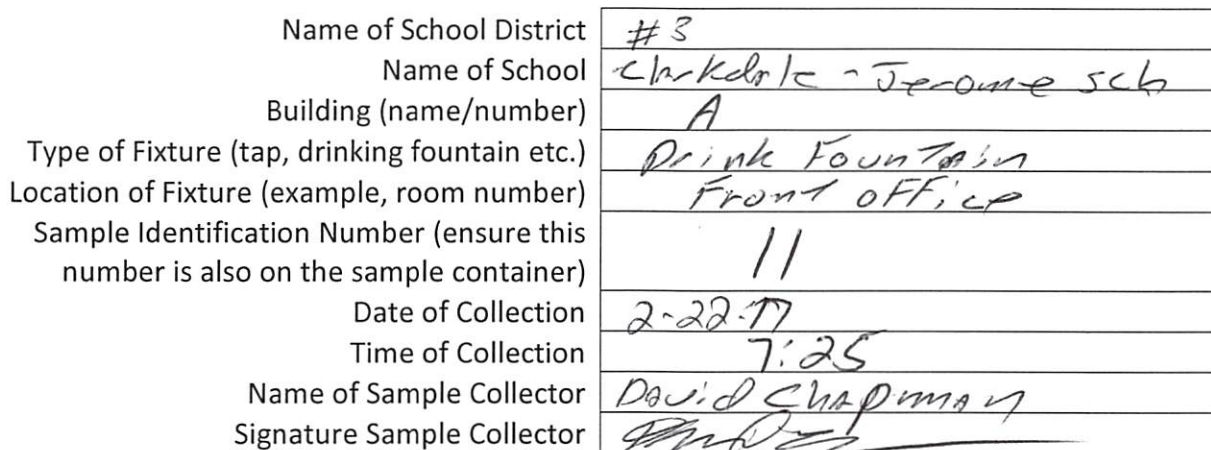 Name of School District #3
Name of School Clarkdale - Jerome sch
Building (name/number) A
Type of Fixture (tap, drinking fountain etc.) Drink Fountain
Location of Fixture (example, room number) Front office
Sample Identification Number (ensure this
number is also on the sample container) 11
Date of Collection 2-22-17
Time of Collection 7:25
Name of Sample Collector David Chapman
Signature Sample Collector